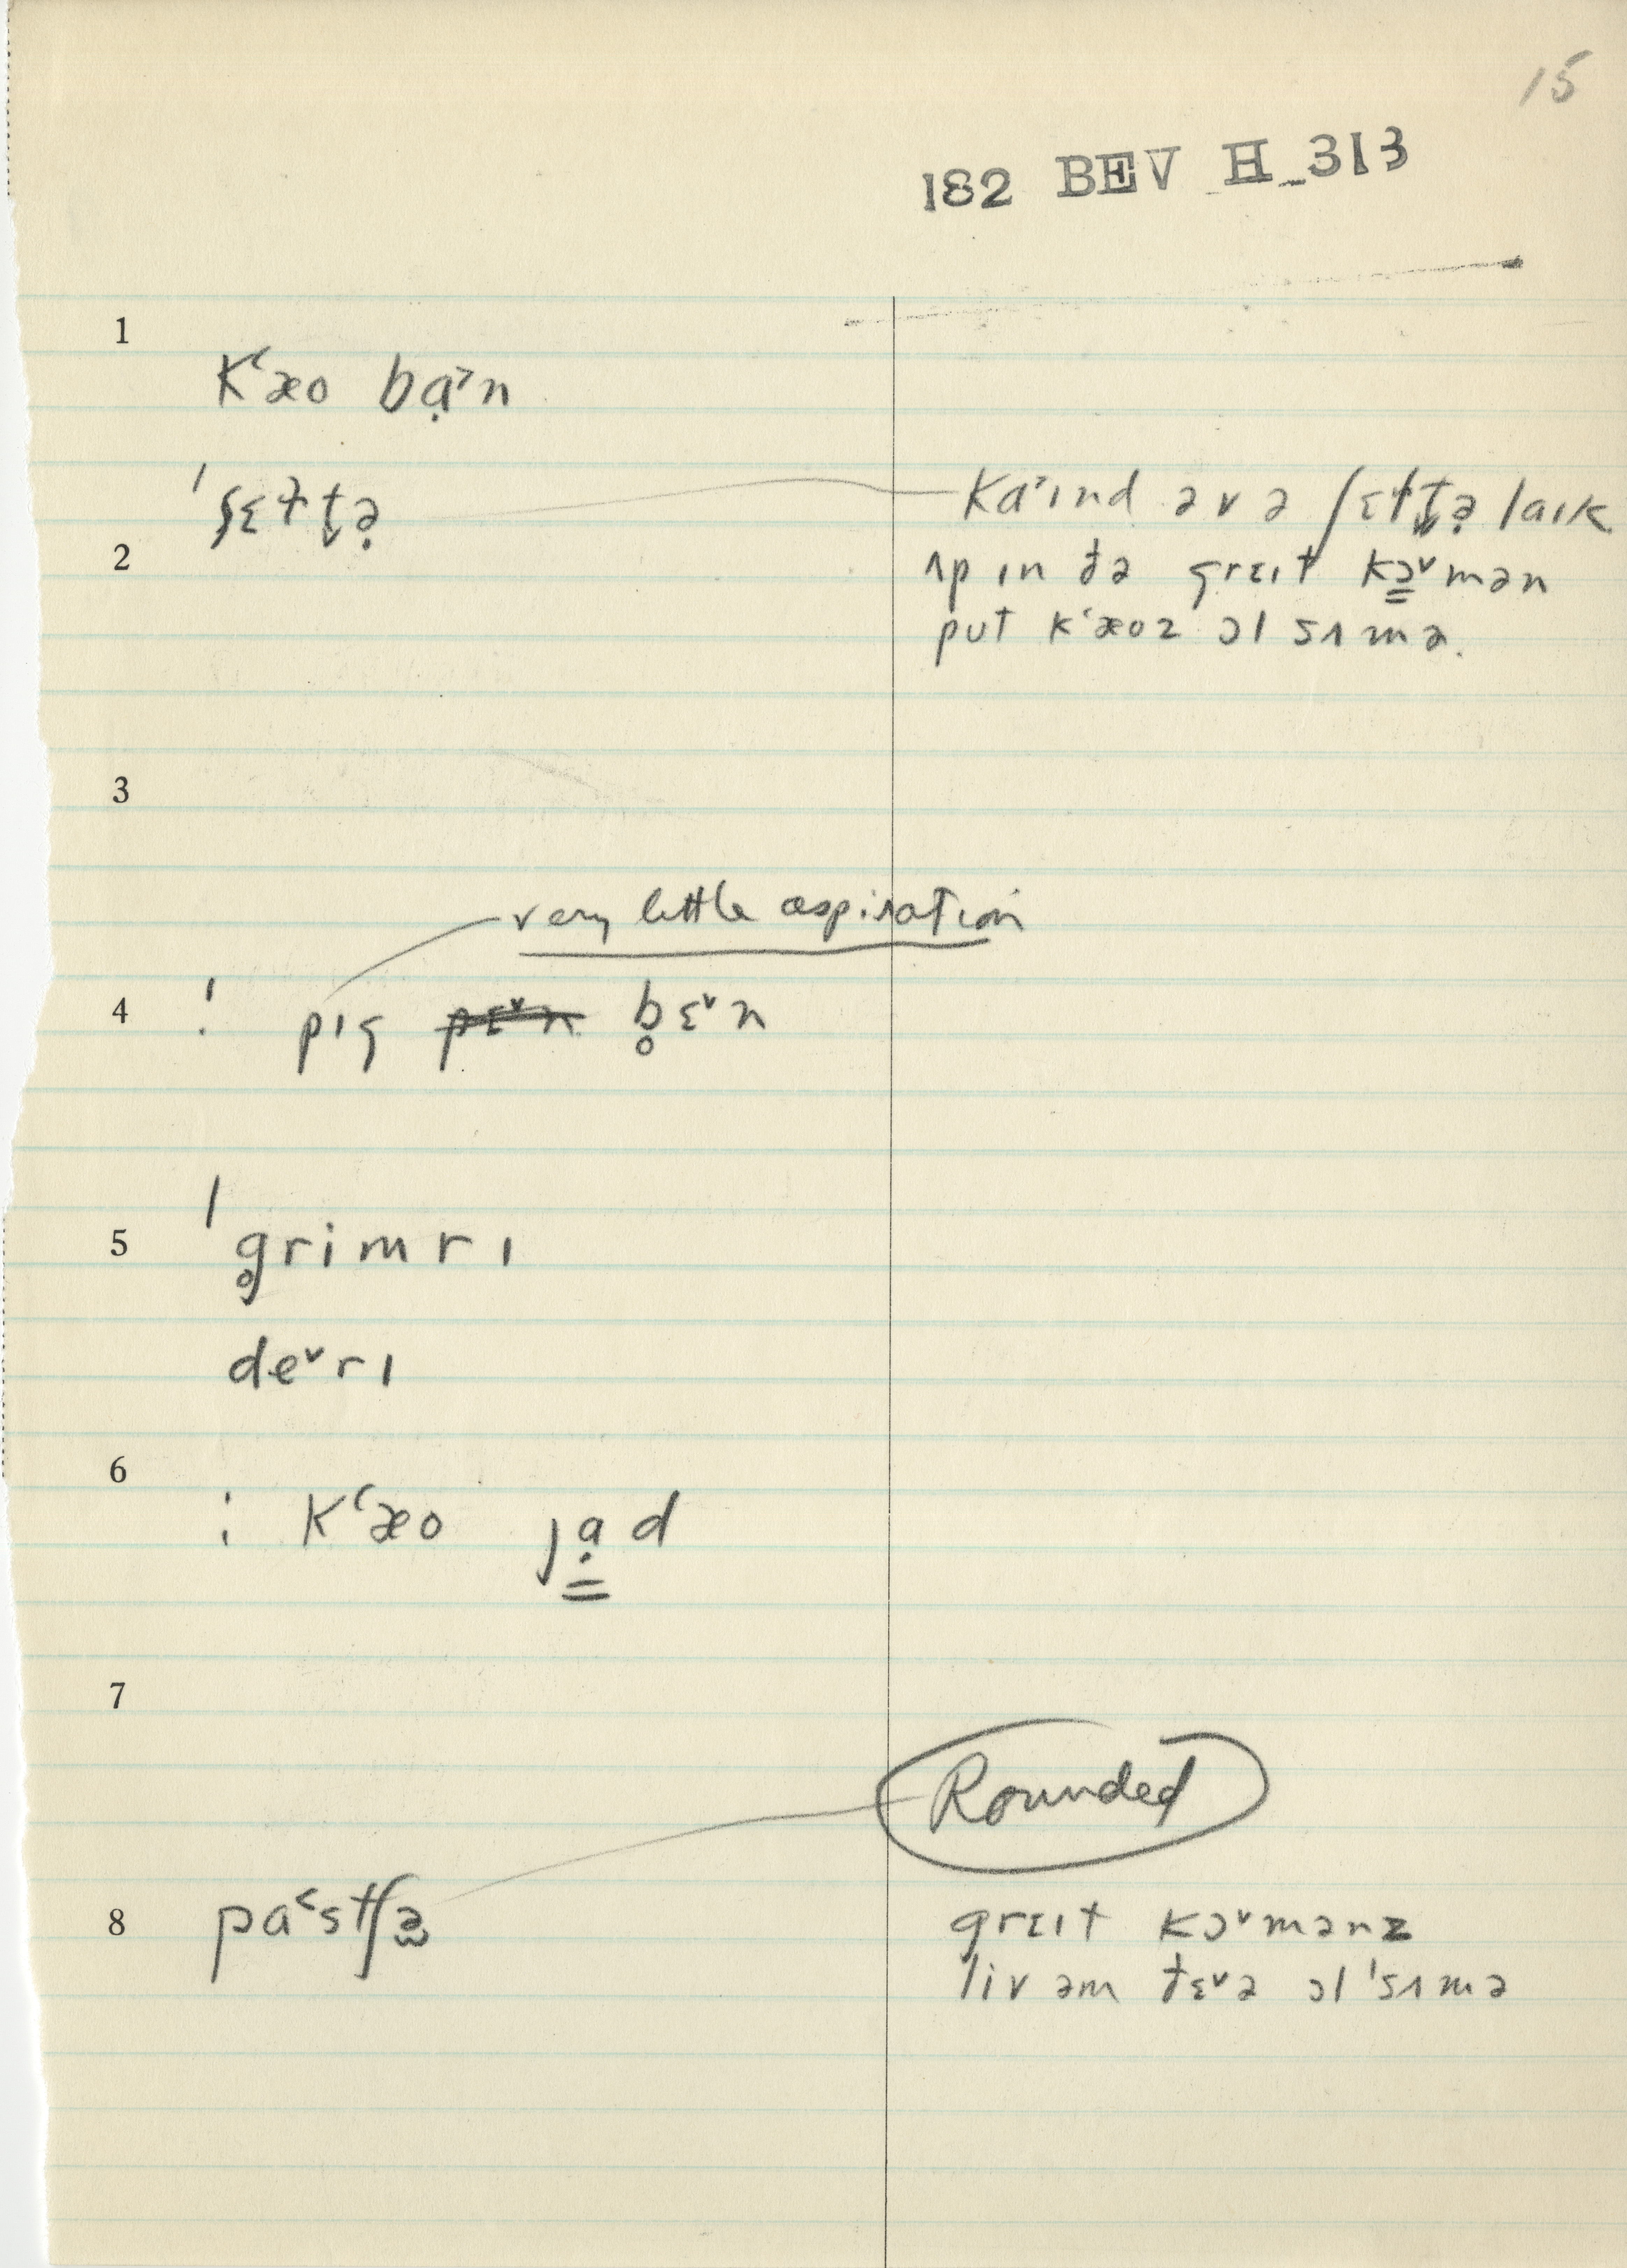 15
182 BEV H_313
1
kʻæo bạ˃n
ˈʂɛɫʈə̣
ka˃ɪnd əvə ʃɛɫʈə̣ laɪk
2
ʌp ɪn ðə grɛɪt kə̳˅mən
put kʻæoz ɔl sʌmə.
3
very little aspiration
4
! pɪg pɛ˅n b̥ɛ˅n
5
ˈg̥rimrɪ
de˅rɪ
6
¦ kʻæo jạ̳d
7
Rounded
8
pa˂stʃə̫
grɛɪt kɔ˅mənz
liv əm ðɛ˅ə ɔlˈsʌmə